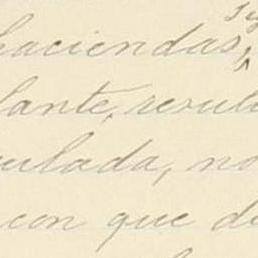 haciendas,
lante, resul
ulada, no
con que de